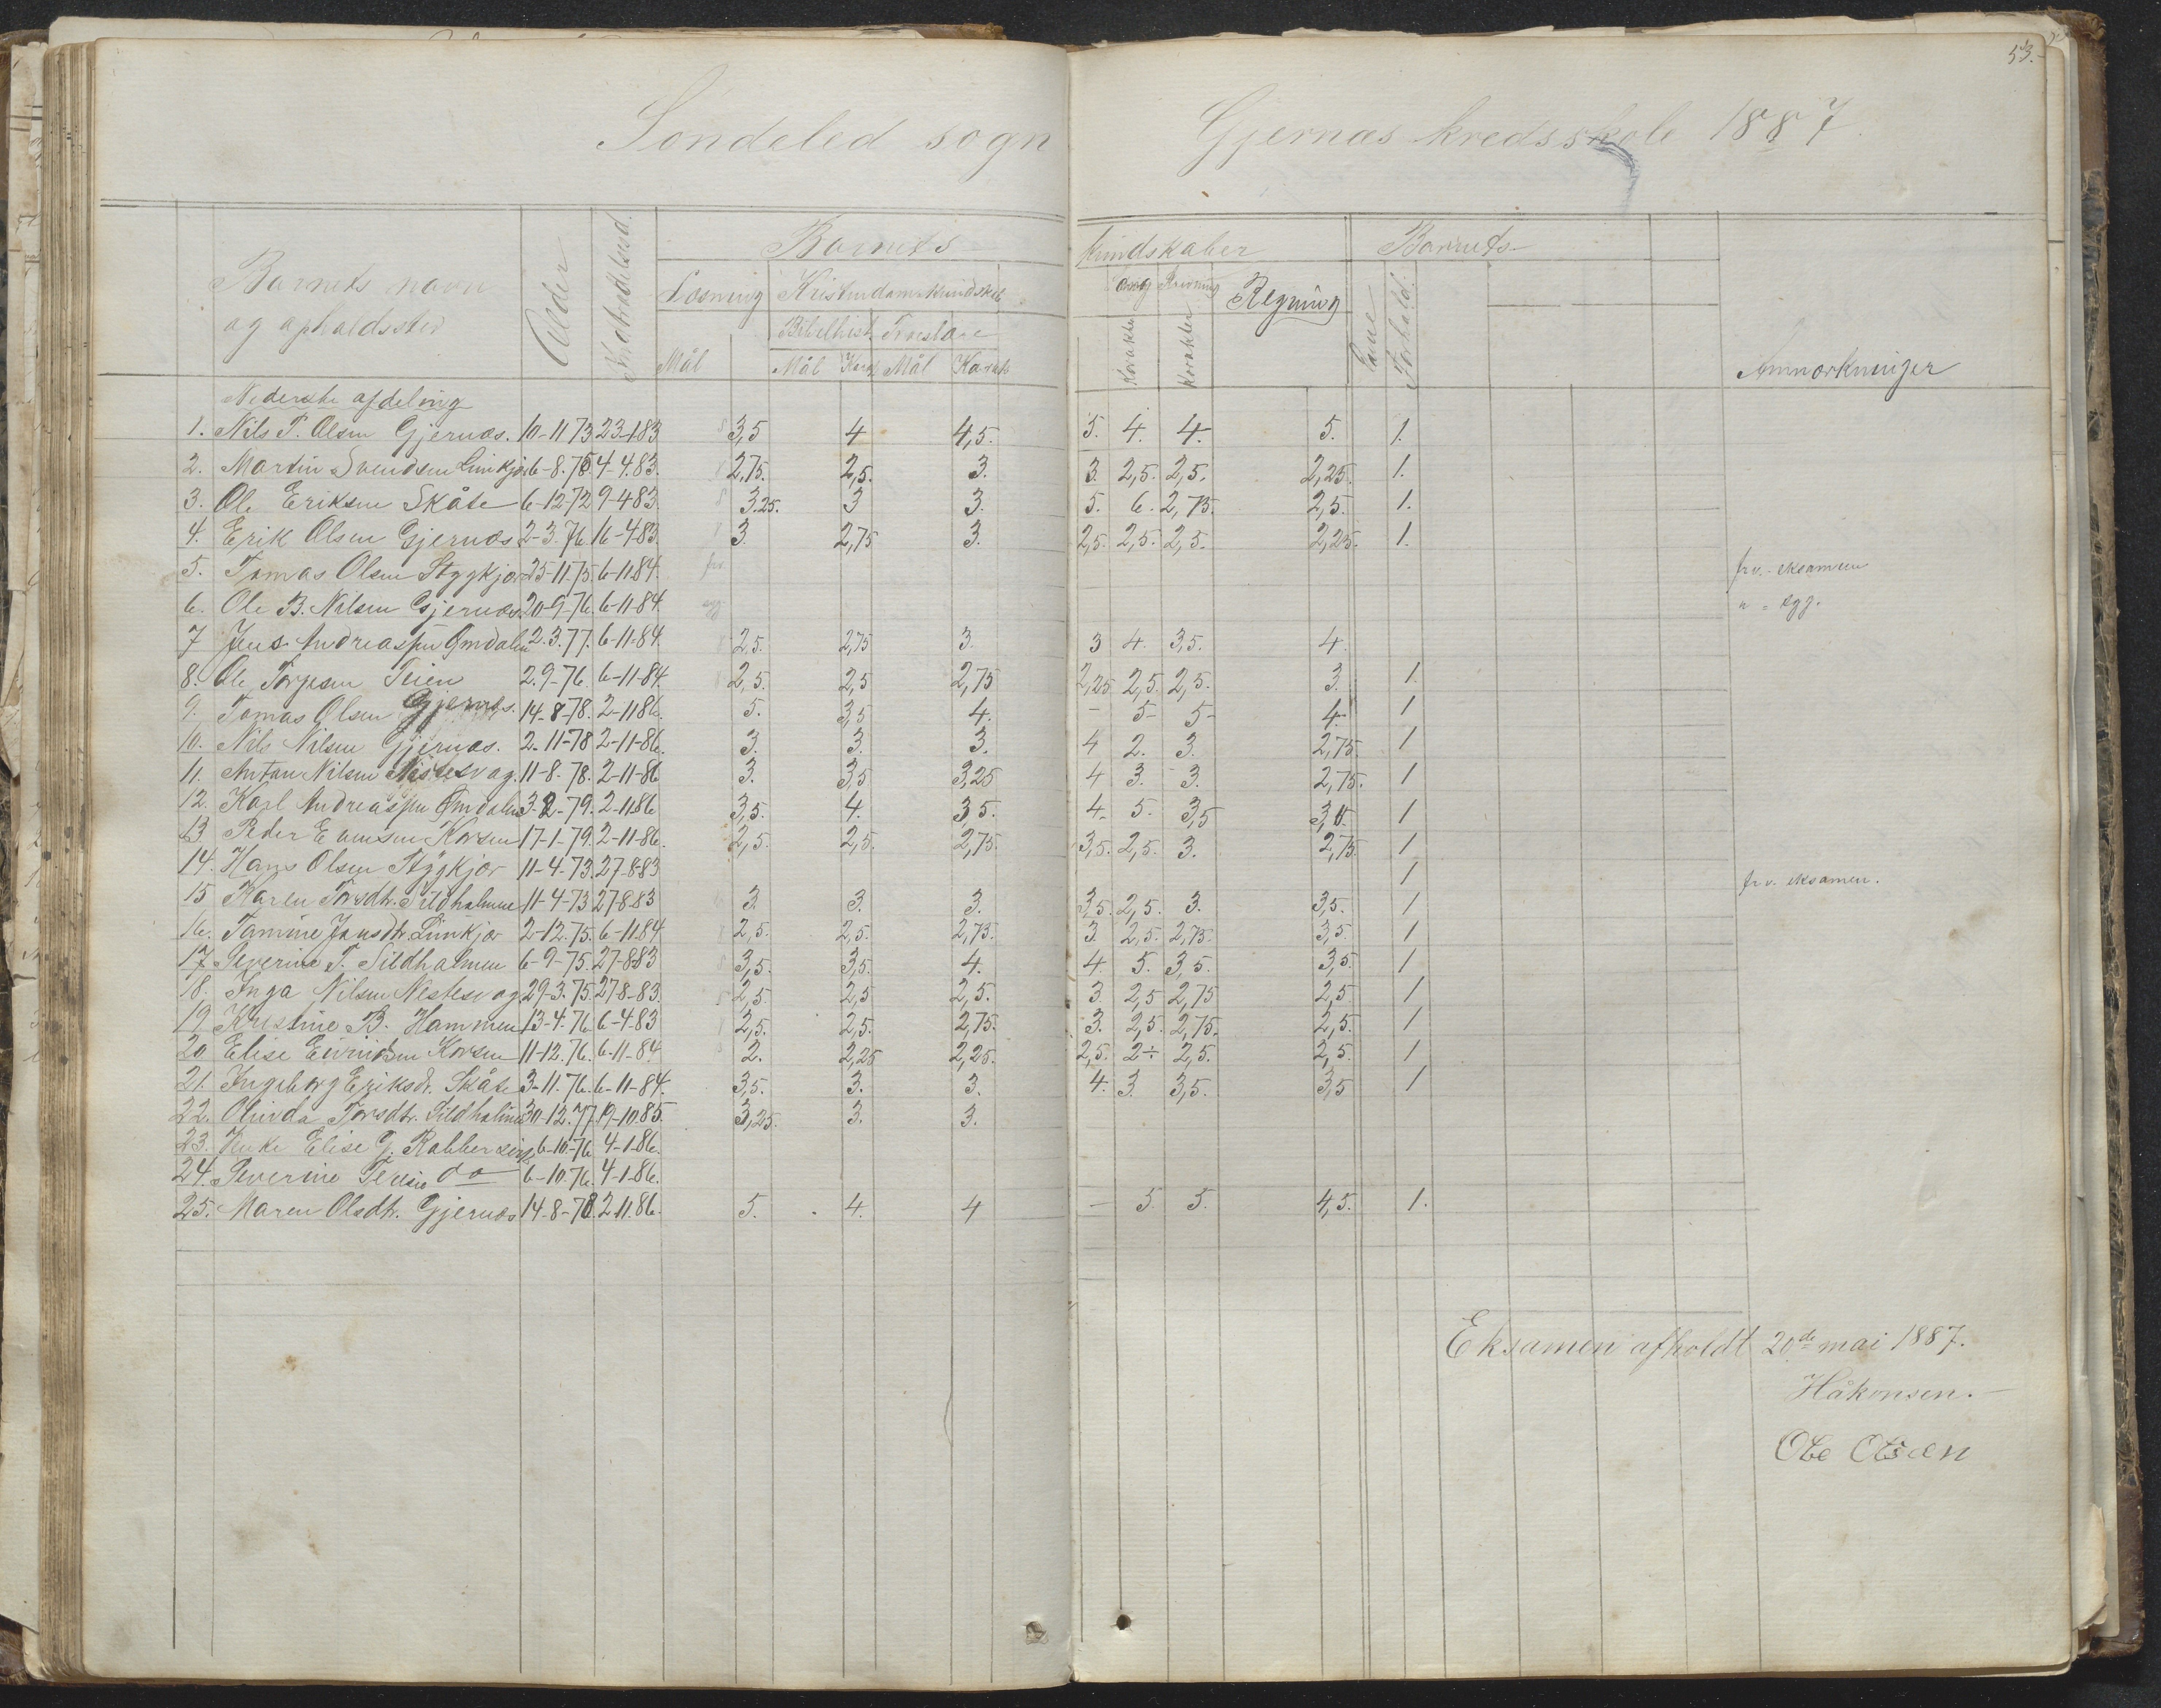 53.
Söndeled sogn Gjernæs kredsskole 1887.
Barnets kundskaber Barnets
Barnets navn og opholdssted Alder Indtrædelsestid. Læsning Kristendomskundskab Sang Skrivning Regning Evne Forhold. Anmærkninger
Bibelhist. Troeslære
Mål Mål Karak Mål Karakt Karakter Karakter
Nederste afdeling
1. Nils T. Olsen Gjernæs. 10-11 73 23-1.83 3,5 4 4,5. 5. 4. 4. 5. 1.
2. Martin Svendsen Linkjær 6-8.75 4-4.83. 2,75. 2,5. 3. 3. 2,5. 2,5. 2,25. 1.
3. Ole Eriksen Skåte 6-12-72 9-4 83. 3.25. 3 3. 5. 6. 2,75. 2,5. 1.
4. Erik Olsen Gjernæs 2-3.76 16-4-83. 3. 2,75 3. 2,5. 2,5. 2,5. 2,25. 1.
5. Tomas Olsen Stygkjær 25-11.75. 6-11.84. frv. frv. - eksamen
6. Ole B. Nilsen Gjernæs. 20-9-76. 6-11-84. syg. " = syg.
7 Jens Andreassen Omdalen 2.3.77. 6-11-84. 2,5. 2,75 3. 3 4. 3,5. 4.
8. Ole Torjesen Teien 2.9-76. 6-11-84. 2,5. 2,5 2,75 2,25 2,5. 2,5. 3. 1.
9. Tomas Olsen Gjernæs. 14-8-78. 2-11 86. 5. 3,5 4. - 5- 5- 4. 1
10. Nils Nilsen Gjernæs. 2-11-78 2-11-86. 3. 3. 3. 4 2. 3. 2,75. 1
11. Anton Nilsen Nestesvag. 11-8.78. 2-11-86 3. 3,5 3,25 4 3. 3. 2,75. 1
12. Karl Andreassen Omdalen 3-2-79. 2-11 86 3,5. 4. 3,5. 4. 5. 3,5 3,5. 1
13 Peder Evensen Korsen 17-1-79. 2-11-86. 2,5. 2,5. 2,75. 3,5. 2,5. 3. 2,75. 1
14. Hans Olsen Stygkjær 11-4-73. 27-8-83 1 frv. eksamen.
15 Karen Torsdtr. Sildholmen 11-4-73 27-8 83 3. 3. 3. 3,5. 2,5. 3. 3,5. 1
16. Tomine Jensdtr. Linkjær 2-12.75. 6-11 84 2,5. 2,5. 2,75. 3. 2,5. 2,75. 3,5. 1
17. Severine T. Sildholmen 6-9-75. 27-8-83 3,5. 3,5. 4. 4. 5. 3,5. 3,5. 1
18. Inga Nilsen Nestesvag 29-3.75. 27-8-83. 2,5. 2,5 2,5. 3. 2,5 2,75 2,5 1
19. Kristine B. Hammen 13-4.76 6-4-83 2,5. 2,5. 2,75. 3. 2,5. 2,75. 2,5. 1
20 Elise Eivindsen Korsen 11-12.76. 6-11-84 2. 2,25 2,25. 2,5. 2÷ 2,5. 2,5. 1
21. Ingeborg Eriksdr. Skåte 3-11.76. 6-11-84. 3,5. 3. 3. 4. 3. 3,5. 3,5 1
22. Olinda Torsdtr. Sildholmen 30-12.77. 19-10 85. 3,25. 3. 3.
23. Elise G. 6-10-76 4-1-86.
24. Severine do 6-10.76. 4-1-86.
25. Maren Olsdtr. Gjernæs 14-8-78. 2.11.86. 5. 4. 4 - 5. 5. 4,5. 1.
Eksamen afholdt 20de mai 1887.
Håkonsen.
Ole Olsen